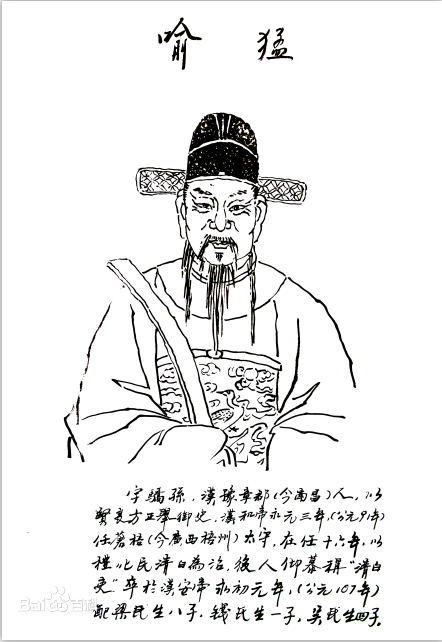 喻 猛
字驕孫，漢豫章郡（今南昌）人，以
賢良方正舉御史，漢和帝永元三年，（公元91年）
任蒼梧（今廣西梧州）太守，在任十六年，以
禮化民清白為治，後人仰慕稱“清白
吏”卒於漢安帝永初元年，（公元107年）
配梁氏生八子，錢氏生一子，吳氏生四子。
Bai百科